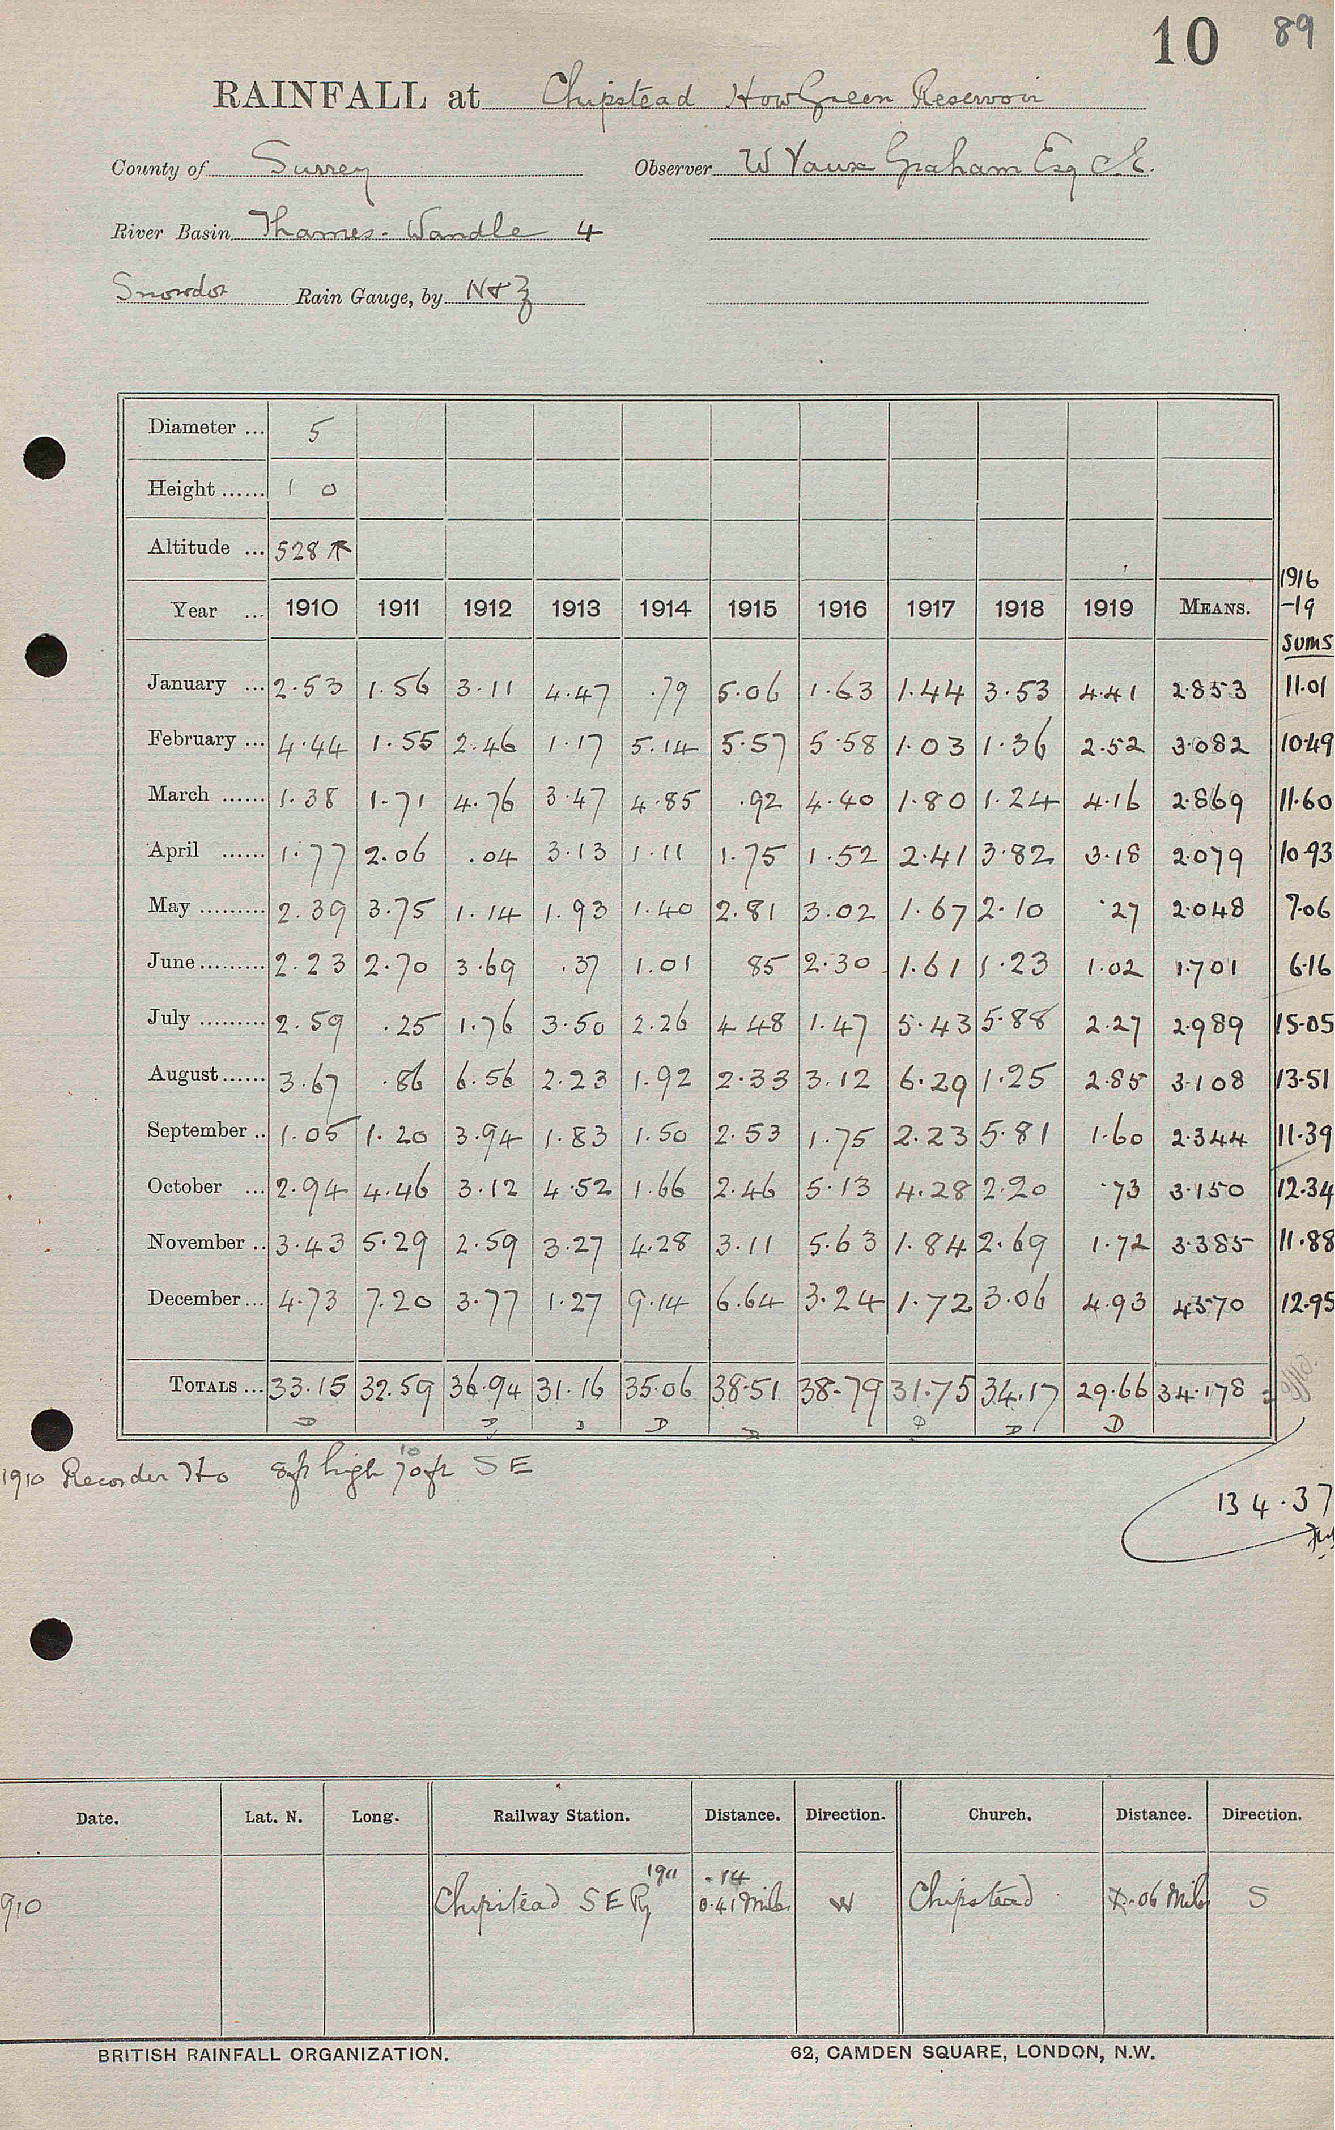 10 89
RAINFALL at Chipstead How Green Reservoir
County of Surrey Observer W Vaux Graham Esq C.E.
River Basin Thames - Wandle 4
Snowdon Rain Gauge, by N & Z
Diameter ... 5
Height ...... 1 0
Altitude ... 528
Year ... 1910 1911 1912 1913 1914 1915 1916 1917 1918 1919 MEANS. 1916 -19 sums
January ... 2.53 1.56 3.11 4.47 .79 5.06 1.63 1.44 3.53 4.41 2.853 11.01
February ... 4.44 1.55 2.46 1.17 5.14 5.57 5.58 1.03 1.36 2.52 3.082 10.49
March ...... 1.38 1.71 4.76 3.47 4.85 .92 4.40 1.80 1.24 4.16 2.869 11.60
April ...... 1.77 2.06 .04 3.13 1.11 1.75 1.52 2.41 3.82 3.18 2.079 10.93
May ......... 2.39 3.75 1.14 1.93 1.40 2.81 3.02 1.67 2.10 .27 2.048 7.06
June ......... 2.23 2.70 3.69 .37 1.01 85 2.30 1.61 1.23 1.02 1.701 6.16
July ......... 2.59 .25 1.76 3.50 2.26 4 48 1.47 5.43 5.88 2.27 2.989 15.05
August ...... 3.67 .86 6.56 2.23 1.92 2.33 3.12 6.29 1.25 2.85 3.108 13.51
September .. 1.05 1.20 3.94 1.83 1.50 2.53 1.75 2.23 5.81 1.60 2.344 11.39
October ... 2.94 4.46 3.12 4.52 1.66 2.46 5.13 4.28 2.20 .73 3.150 12.34
November .. 3.43 5.29 2.59 3.27 4.28 3.11 5.63 1.84 2.69 1.72 3.385 11.88
December ... 4.73 7.20 3.77 1.27 9.14 6.64 3.24 1.72 3.06 4.93 4.570 12.95
TOTALS ... 33.15 32.59 36.94 31.16 35.06 38.51 38.79 31.75 34.17 29.66 34.178
D D D D D D D D
1910 Recorder Ho 8ft high 10 70ft S E
134.37
Date. Lat. N. Long. Railway Station. Distance. Direction. Church. Distance. Direction.
1911 .14
910 Chipstead S E Ry 0.41 Miles W Chipstead .06 Mile S
BRITISH RAINFALL ORGANIZATION. 62, CAMDEN SQUARE, LONDON, N.W.